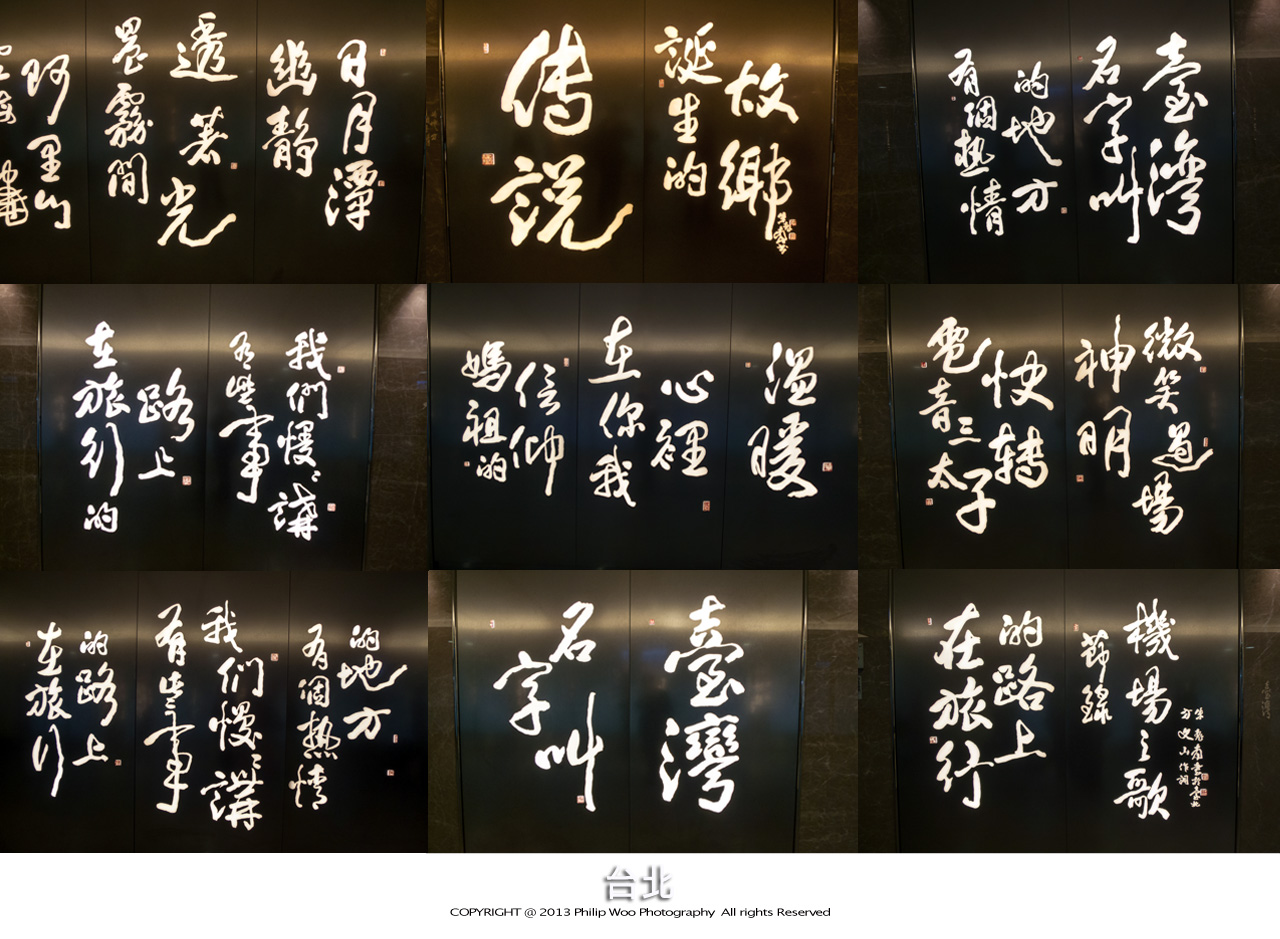 日月潭
幽靜
透著光
晨霧間
阿里山
故鄉
誕生的
傳說
臺灣
名字叫
的地方
有個热情
我們慢慢講
有些事
路上
在旅行的
溫暖
心裡
在你我
信仰
媽祖的
微笑過場
神明
快轉
電音三太子
的地方
有個热情
我們慢慢講
有些事
的路上
在旅行
臺灣
名字叫
機場之歌
節錄
方文山作詞
的路上
在旅行
台北
COPYRIGHT @ 2013 Philip Woo Photography All rights Reserved